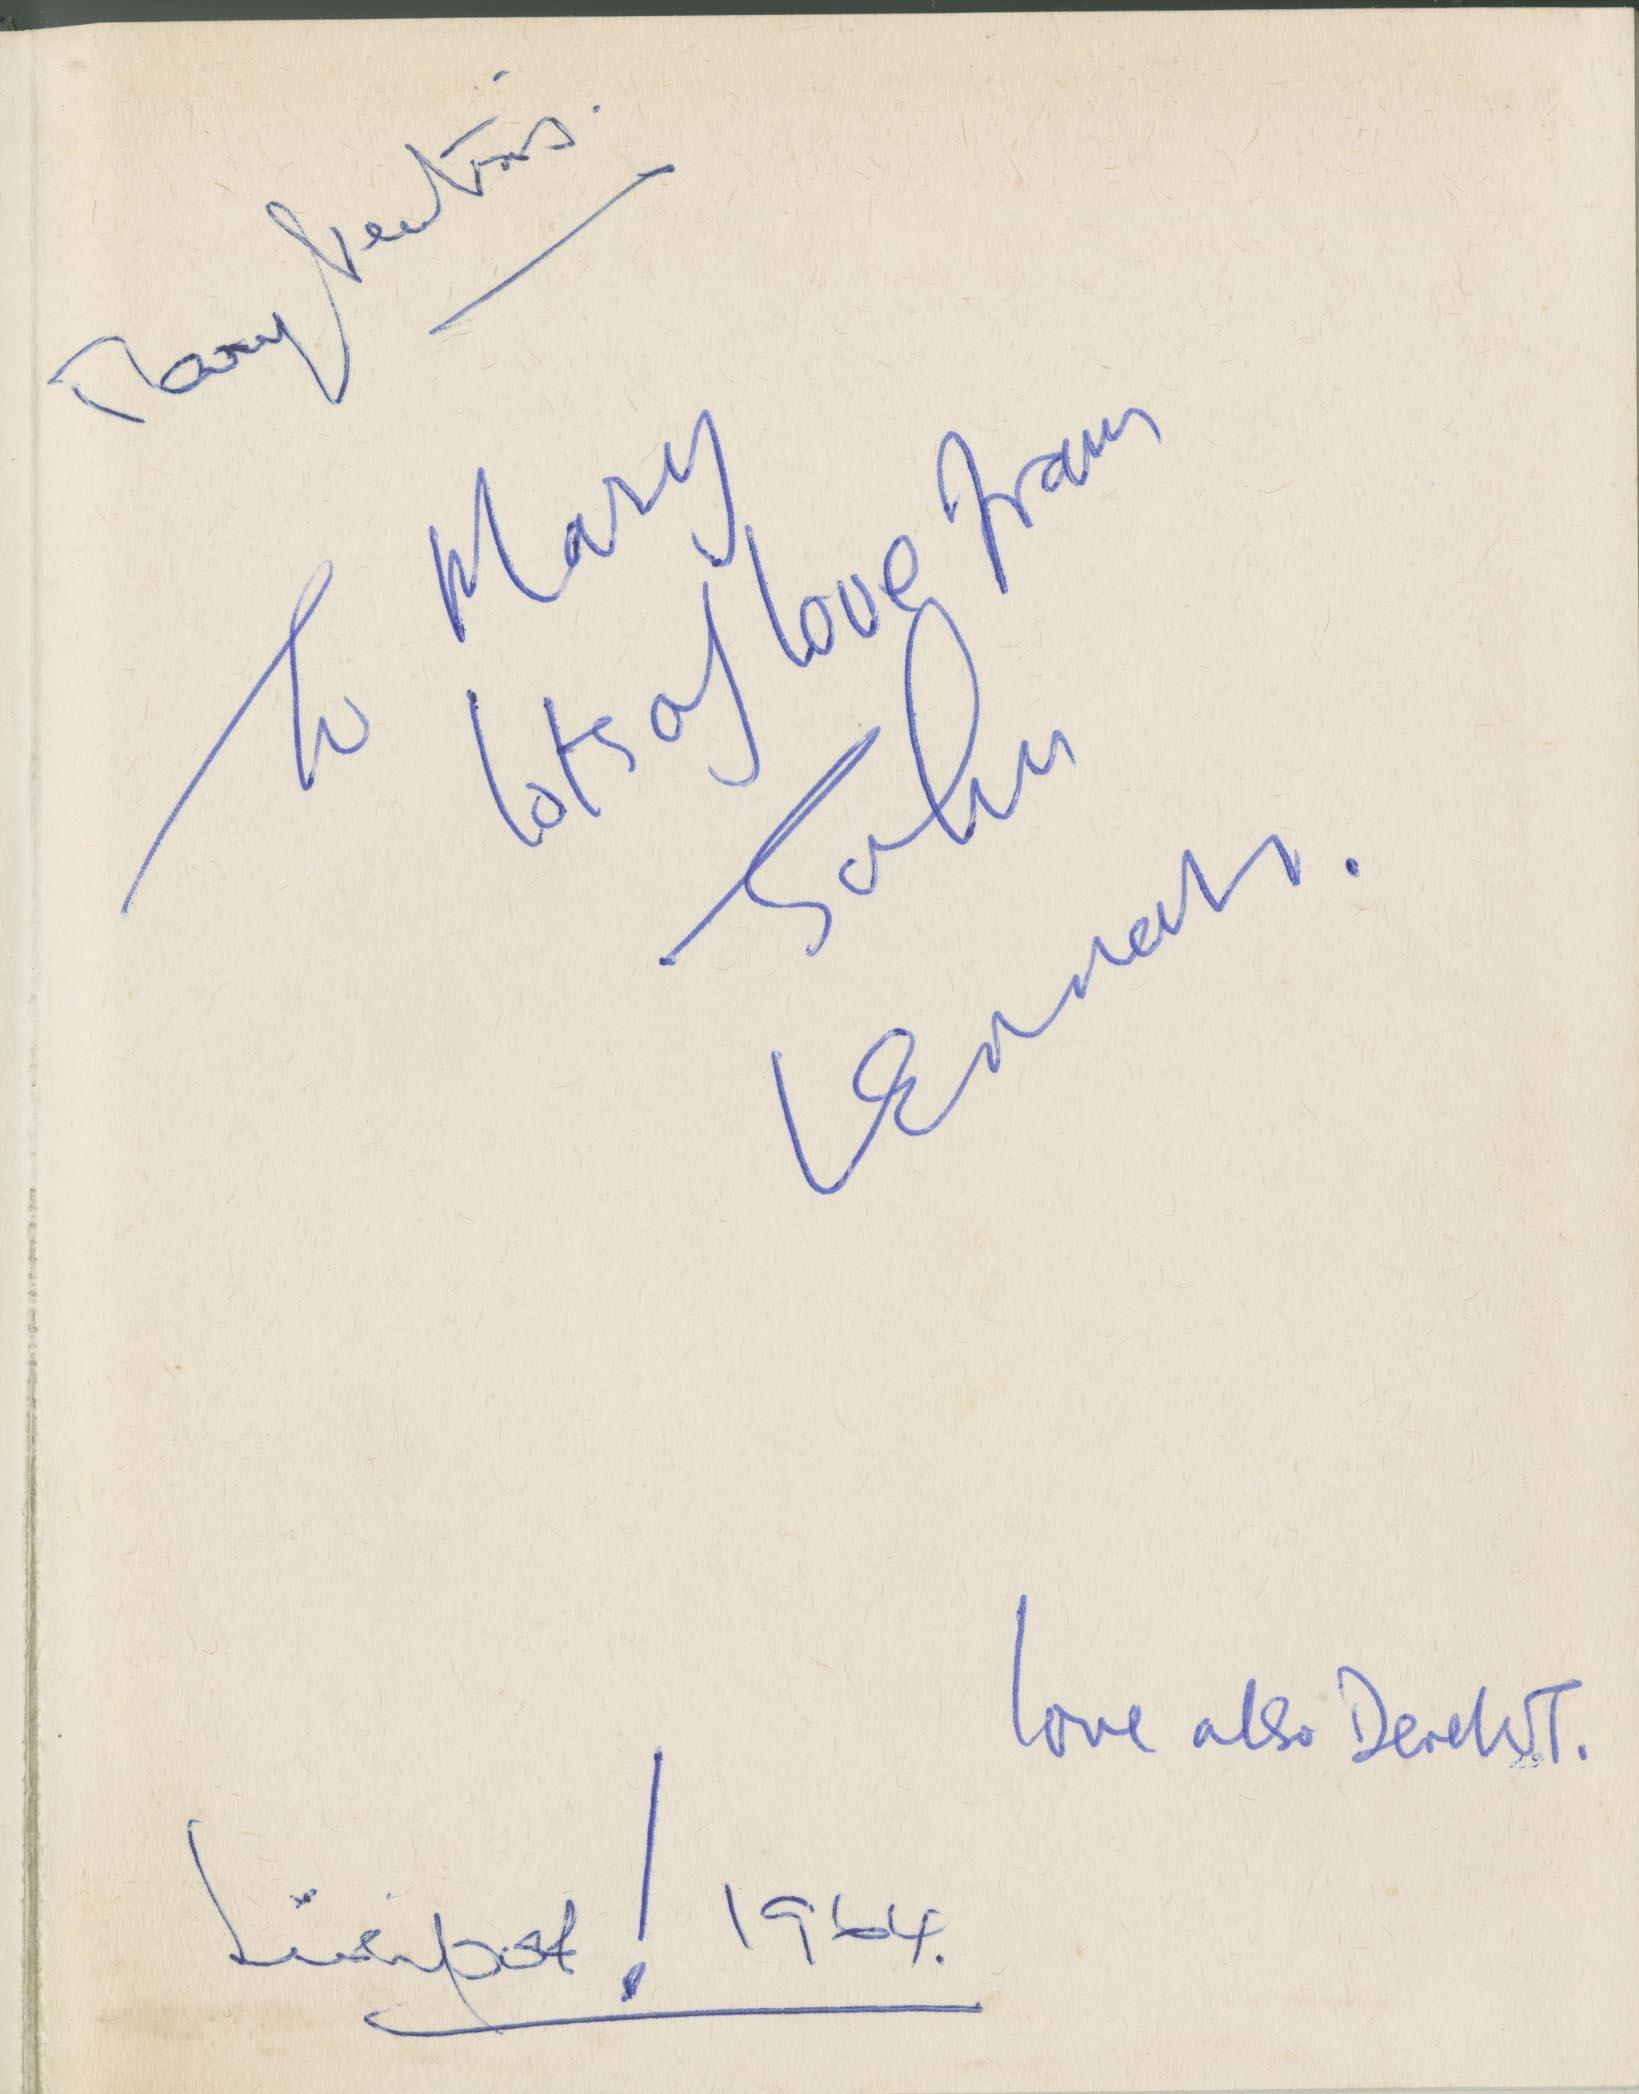 Mary
To Mary
lots of love from
John
Lennon.
love also Derek. T.
Liverpool! 1964.